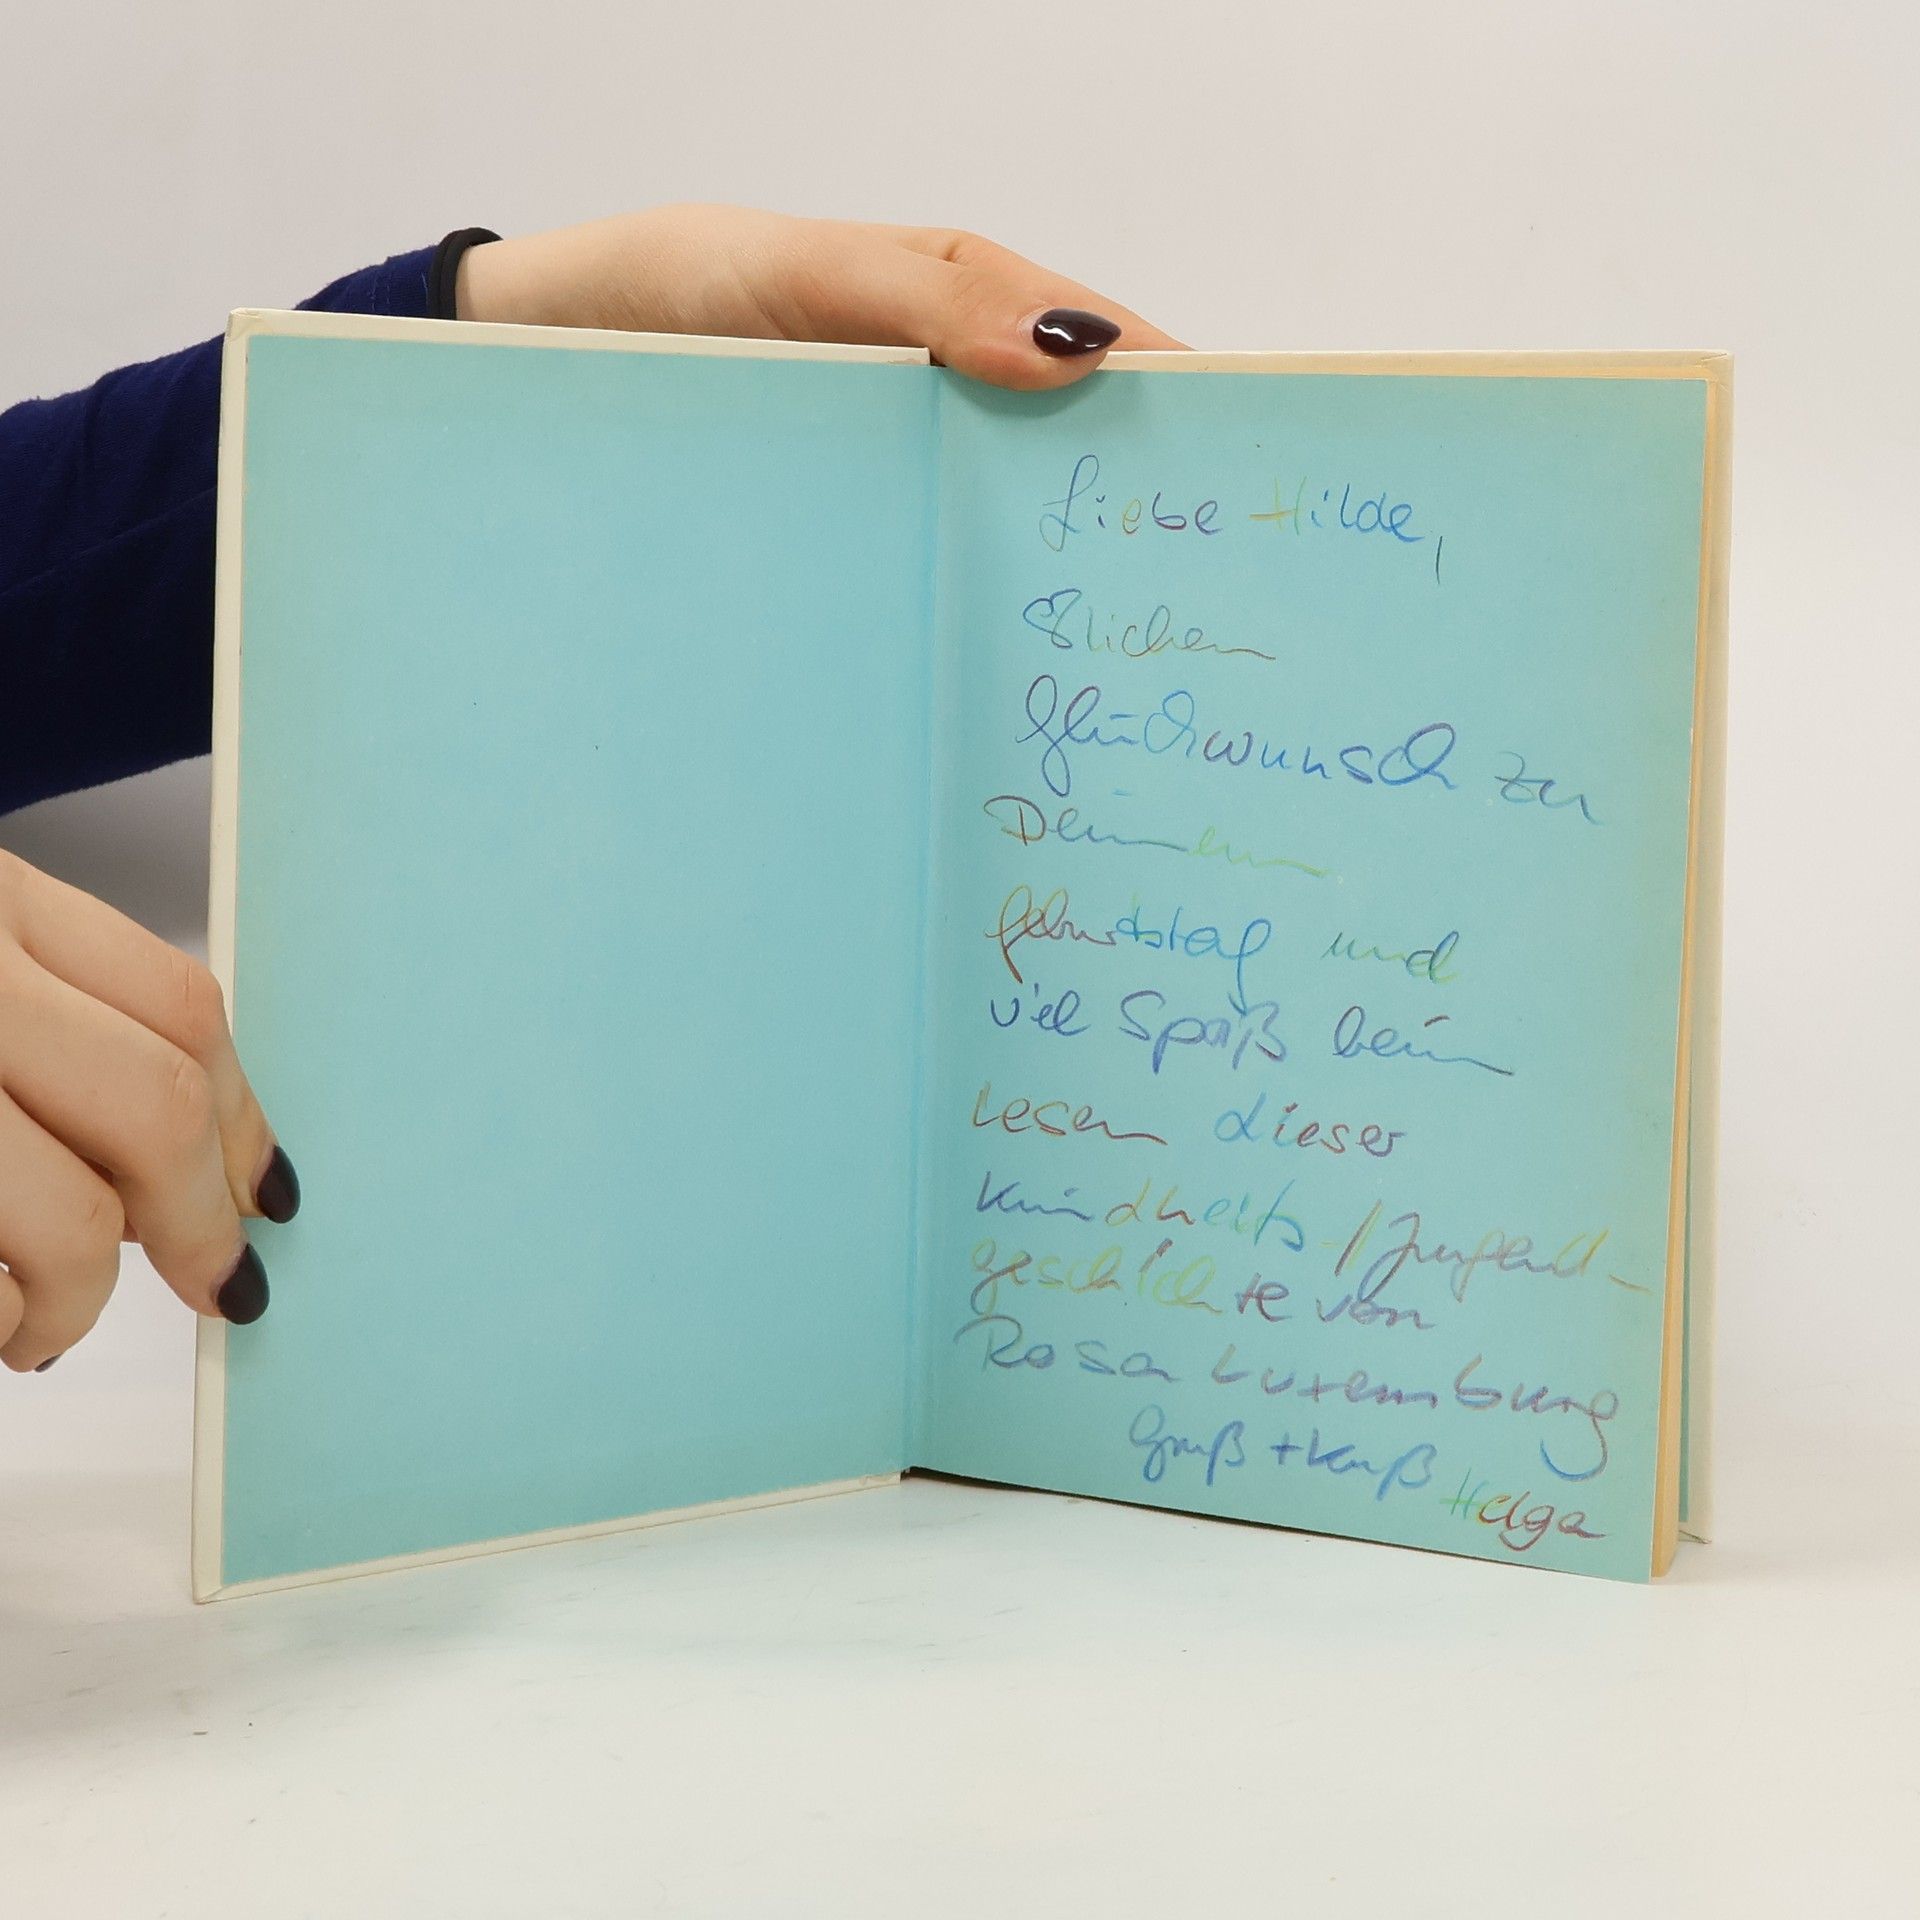 Liebe Hilde,
♡lichen
Glückwunsch zu
Deinem
Geburtstag und
viel Spaß beim
Lesen dieser
Kindheits-/Jugend-
geschichte von
Rosa Luxemburg
Gruß + Kuß
Helga